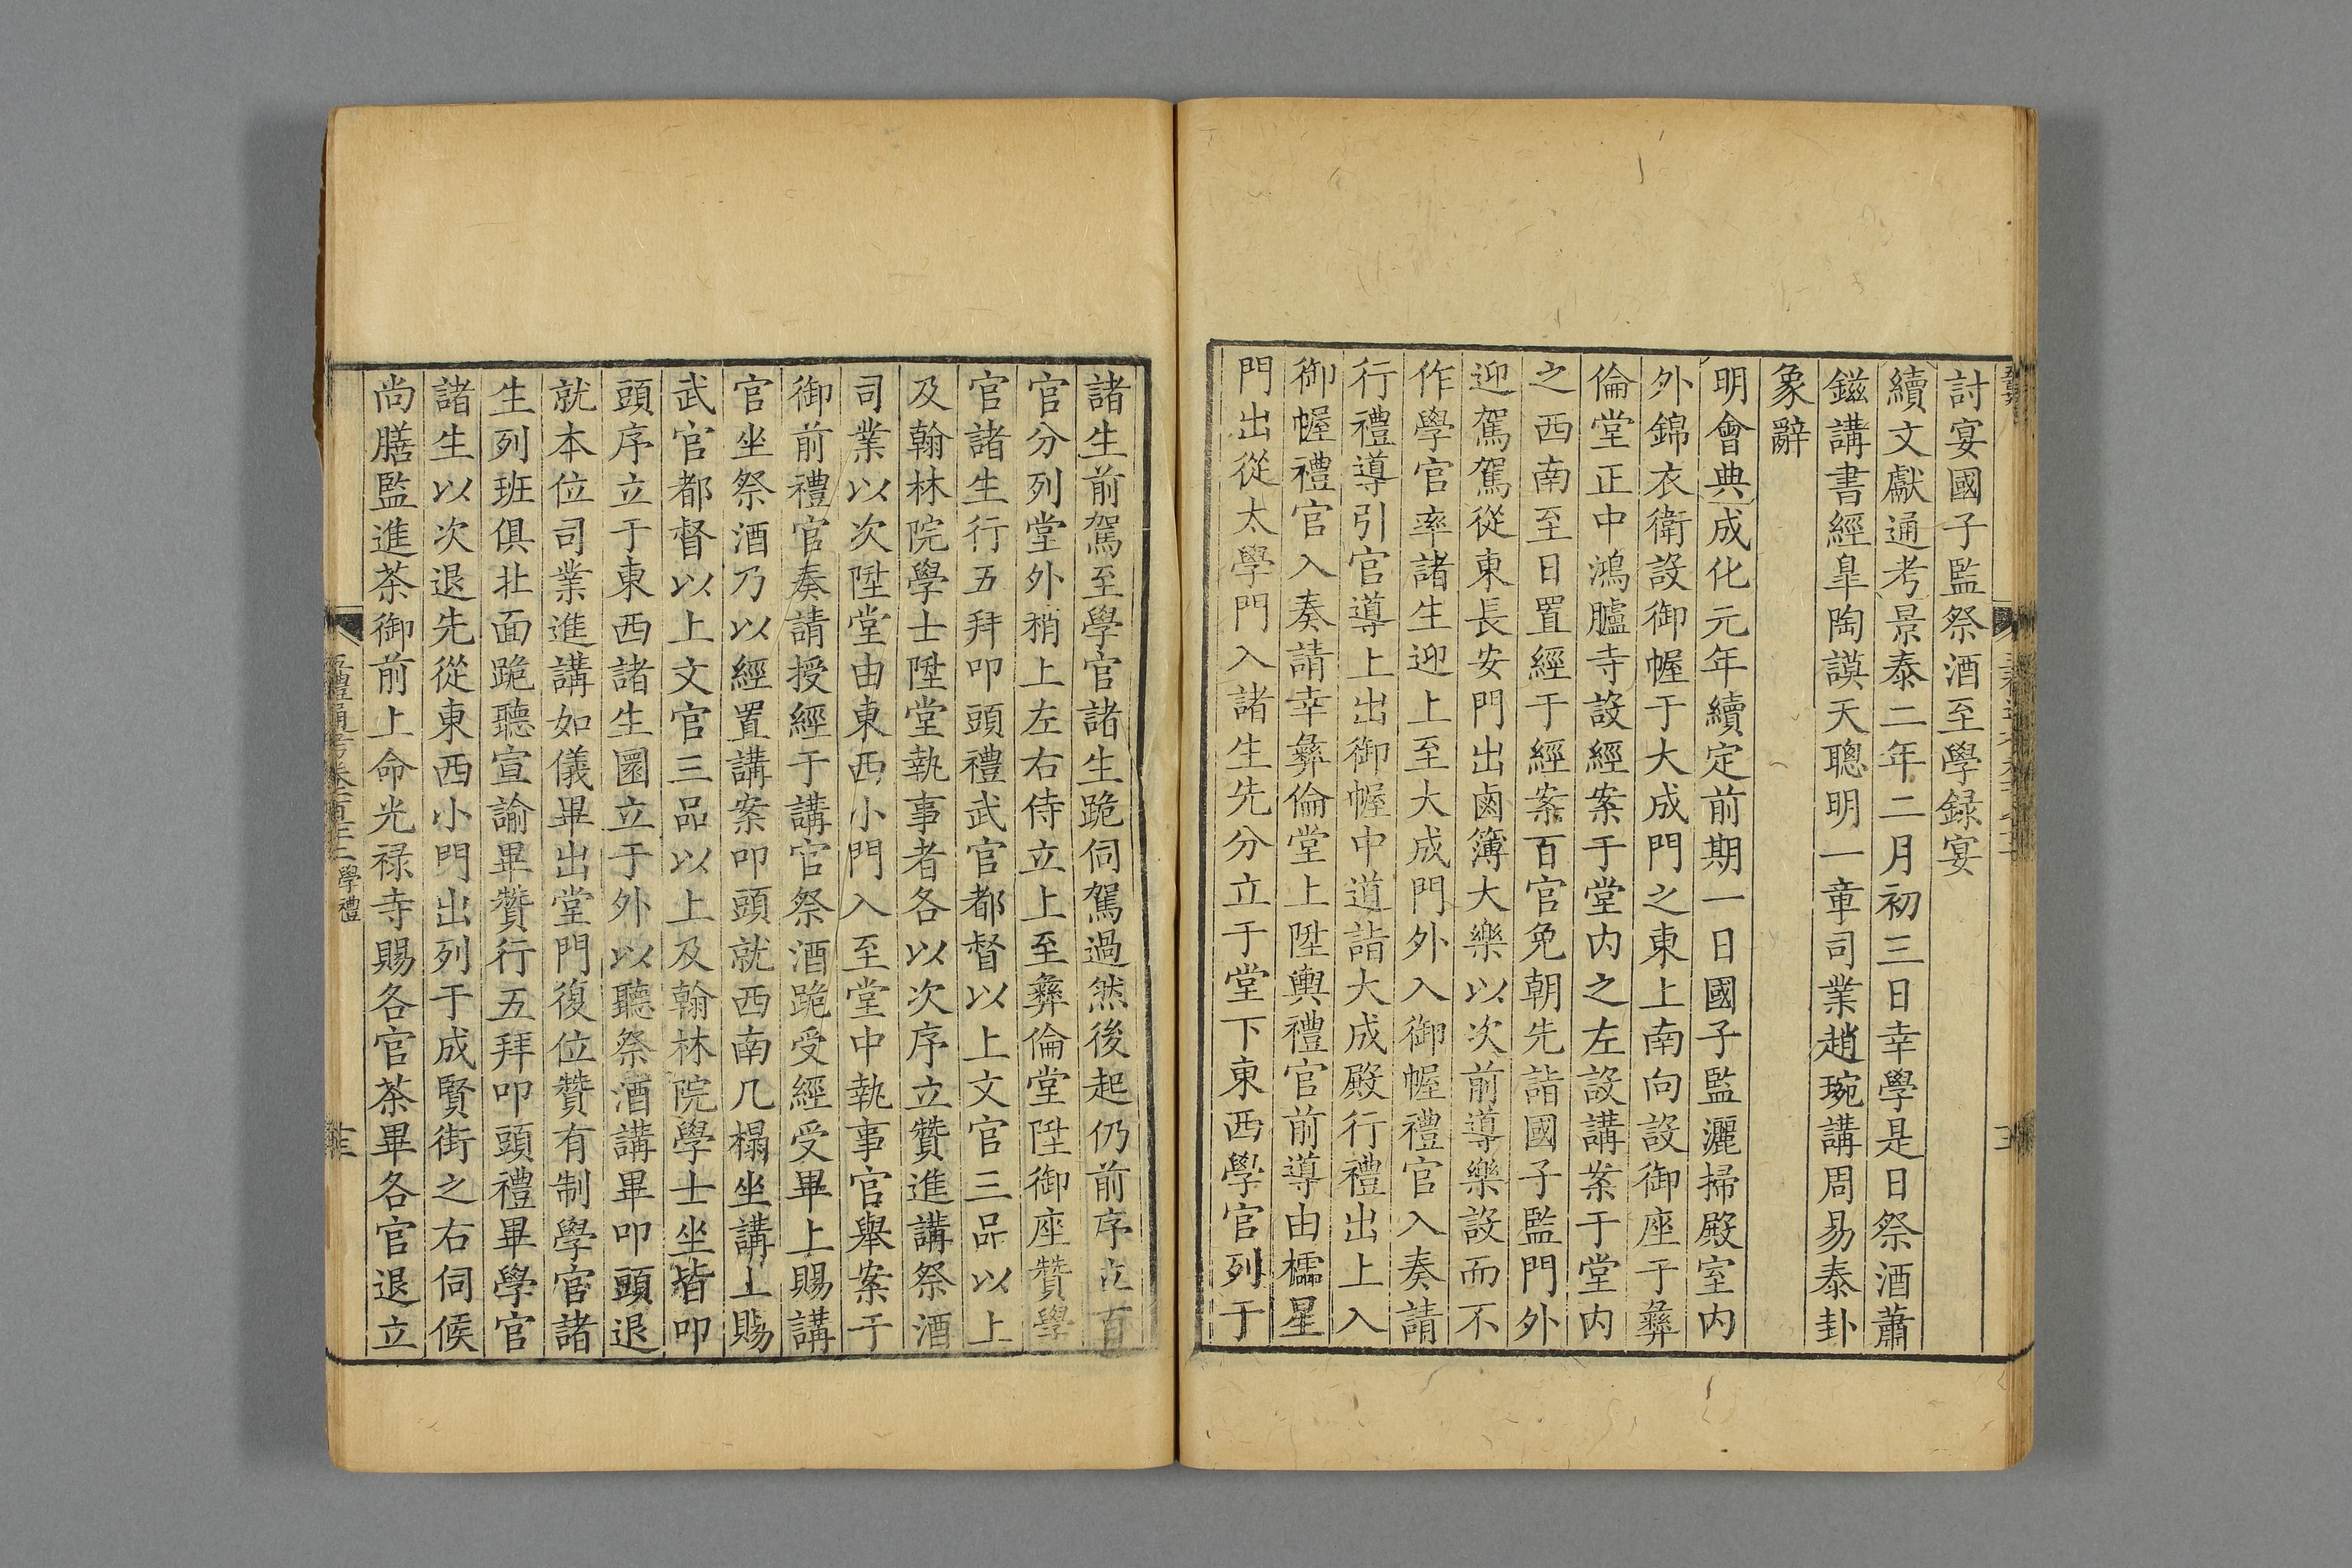 討宴國子監祭酒至學録宴
續文獻通考景泰二年二月初三日幸學是日祭酒蕭
鎡講書經臯陶謨天聰明一章司業趙琬講周易泰卦
象辭
明會典成化元年續定前期一日國子監灑掃殿室内
外錦衣衛設御幄于大成門之東上南向設御座于彝
倫堂正中鴻臚寺設經案于堂内之左設講案于堂内
之西南至日置經于經案百官免朝先詣國子監門外
迎駕駕從東長安門出鹵簿大樂以次前導樂設而不
作學官率諸生迎上至大成門外入御幄禮官入奏請
行禮導引官導上出御幄中道詣大成殿行禮出上入
御幄禮官入奏請幸彝倫堂上陞輿禮官前導由櫺星
門出從太學門入諸生先分立于堂下東西學官列于
諸生前駕至學官諸生跪伺駕過然後起仍前序立百
官分列堂外稍上左右侍立上至彝倫堂陞御座贊學
官諸生行五拜叩頭禮武官都督以上文官三品以上
及翰林院學士陞堂執事者各以次序立贊進講祭酒
司業以次陞堂由東西小門入至堂中執事官舉案于
御前禮官奏請授經于講官祭酒跪受經受畢上賜講
官坐祭酒乃以經置講案叩頭就西南几榻坐講上賜
武官都督以上文官三品以上及翰林院學士坐皆叩
頭序立于東西諸生圜立于外以聽祭酒講畢叩頭退
就本位司業進講如儀畢出堂門復位贊有制學官諸
生列班俱北面跪聽宣諭畢贊行五拜叩頭禮畢學官
諸生以次退先從東西小門出列于成賢街之右伺候
尚膳監進茶御前上命光禄寺賜各官茶畢各官退立
學禮